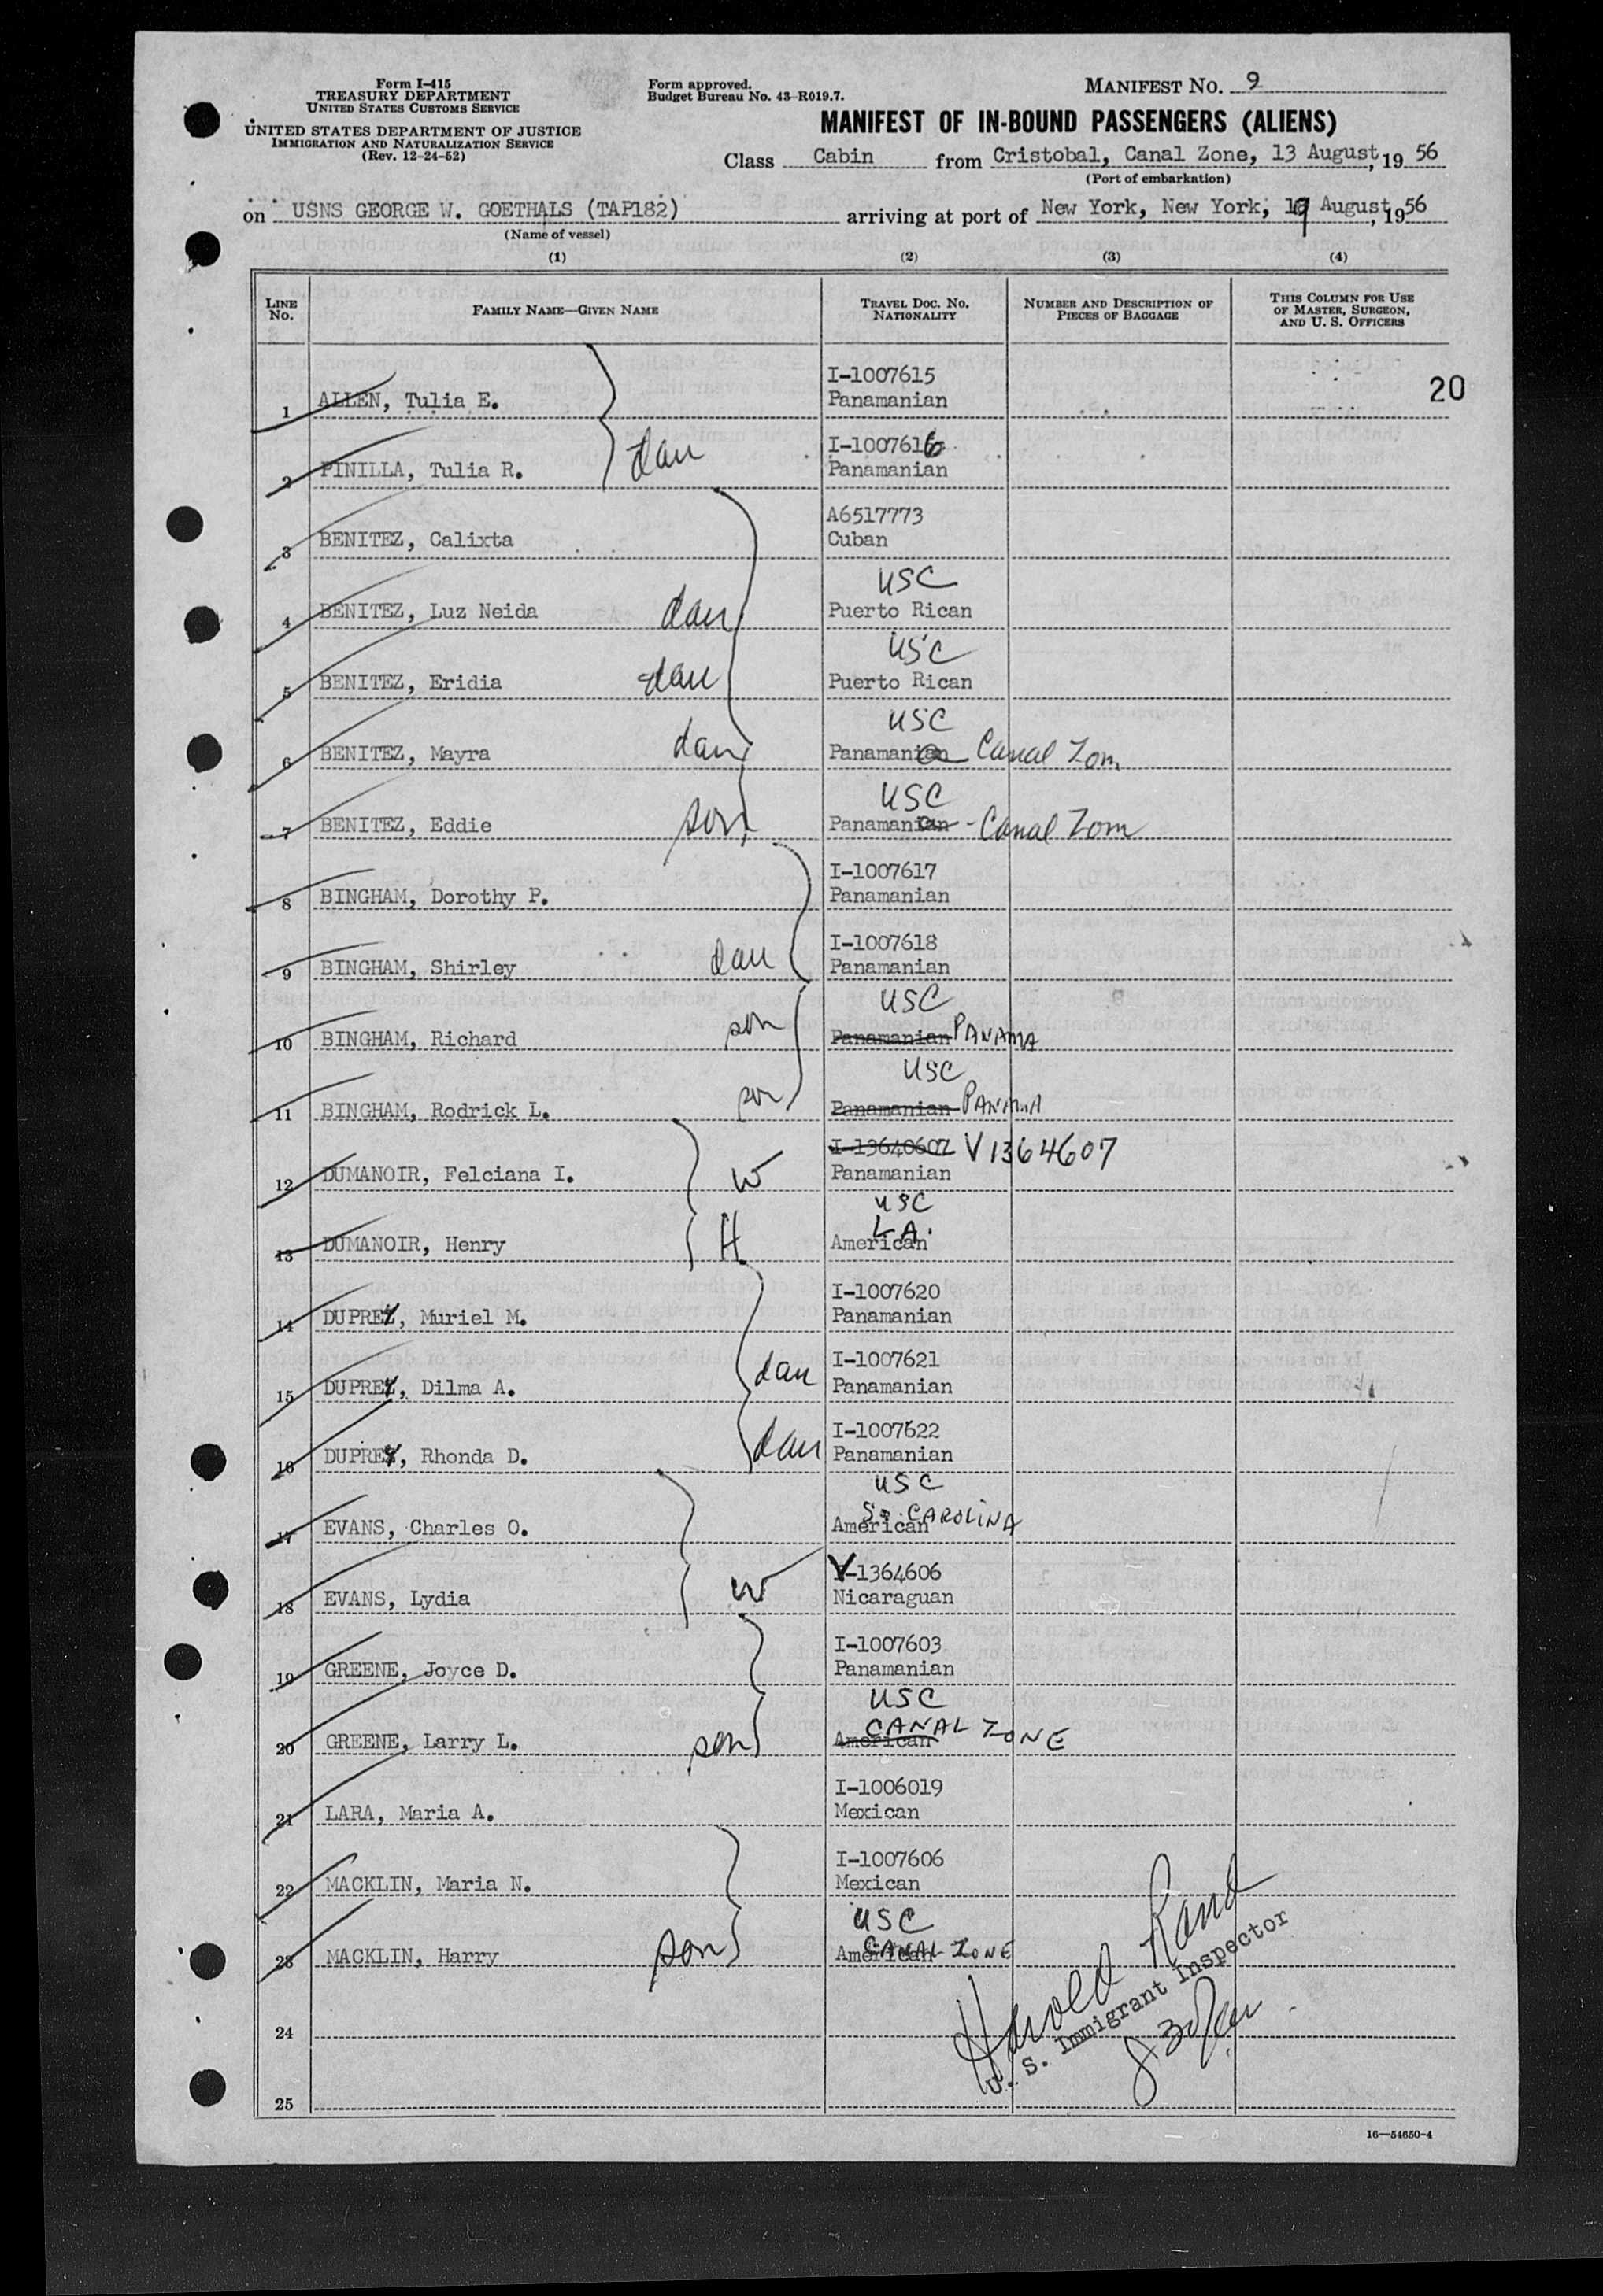 Form I-415
TREASURY DEPARTMENT
UNITED STATES CUSTOMS SERVICE
UNITED STATES DEPARTMENT OF JUSTICE
IMMIGRATION AND NATURALIZATION SERVICE
(Rev. 12-24-52)
Form approved.
Budget Bureau No. 43-R019.7.
MANIFEST NO. 9
MANIFEST OF IN-BOUND PASSENGERS (ALIENS)
Class Cabin from Cristobal, Canal Zone, 13 August, 19 56
(Port of embarkation)
on USNS GEORGE W. GOETHALS (TAP182) arriving at port of New York, New York, 19 August, 19 56
(Name of vessel)
(1) (2) (3) (4)
LINE No. FAMILY NAME—GIVEN NAME TRAVEL DOC. NO. NATIONALITY NUMBER AND DESCRIPTION OF PIECES OF BAGGAGE THIS COLUMN FOR USE OF MASTER, SURGEON, AND U. S. OFFICERS
20
I-1007615
1 ALLEN, Tulia E. Panamanian
I-1007616
2 PINILLA, Tulia R. dau Panamanian
A6517773
3 BENITEZ, Calixta Cuban
USC
4 BENITEZ, Luz Neida dau Puerto Rican
USC
5 BENITEZ, Eridia dau Puerto Rican
USC
6 BENITEZ, Mayra dau Panamanian Canal Zone
USC
7 BENITEZ, Eddie son Panamanian - Canal Zone
I-1007617
8 BINGHAM, Dorothy P. Panamanian
I-1007618
9 BINGHAM, Shirley dau Panamanian
USC
10 BINGHAM, Richard son Panamanian PANAMA
USC
11 BINGHAM, Rodrick L. son Panamanian PANAMA
I-13640607 V1364607
12 DUMANOIR, Felciana I. W Panamanian
USC
LA.
13 DUMANOIR, Henry H American
I-1007620
14 DUPREY, Muriel M. Panamanian
I-1007621
15 DUPREY, Dilma A. dau Panamanian
I-1007622
16 DUPREY, Rhonda D. dau Panamanian
USC
So. CAROLINA
17 EVANS, Charles O. American
V-1364606
18 EVANS, Lydia W Nicaraguan
I-1007603
19 GREENE, Joyce D. Panamanian
USC
CANAL ZONE
20 GREENE, Larry L. son American
I-1006019
21 LARA, Maria A. Mexican
I-1007606
22 MACKLIN, Maria N. Mexican
USC
CANAL ZONE
23 MACKLIN, Harry son American
24
25
Harold Rand
U. S. Immigrant Inspector
16—54650-4